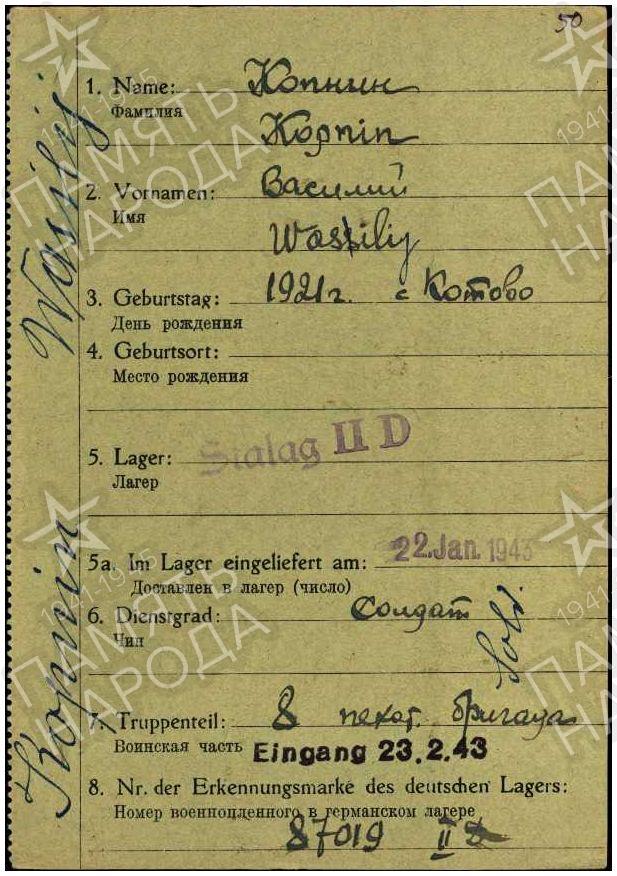 50
1. Name: Копнин
Фамилия
Kopnin
2. Vornamen: Василий
Имя
Wassiliy
3. Geburtstag: 1921 г. с Котово
День рождения
4. Geburtsort:
Место рождения
5. Lager: Stalag II D
Лагерь
5a. Im Lager eingeliefert am: 22. Jan. 1943
Доставлен в лагерь (число)
6. Dienstgrad: Солдат
Чин
Sold.
7. Truppenteil: 8 пехот. бригада
Воинская часть Eingang 23.2.43
8. Nr. der Erkennungsmarke des deutschen Lagers:
Номер военнопленного в германском лагере
87019 II D
Kopnin Wassilij
ПАМЯТЬ НАРОДА
1941-1945